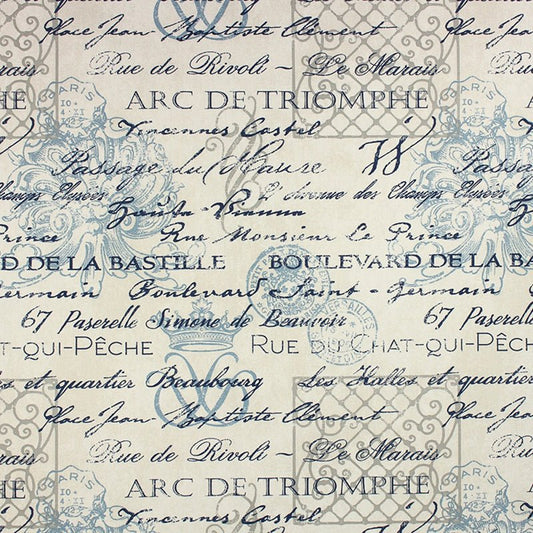 Place Jean-Baptiste Clément Place Jean
Rue de Rivoli ~ Le Marais
ARC DE TRIOMPHE
PARIS
Vincennes Castel
Passage du Maure
Champs Elysées L'avenue des Champs Elysées
Haute-Vienne
Prince Rue Monsieur Le Prince
D DE LA BASTILLE BOULEVARD DE LA BASTILLE
Germain Boulevard Saint-Germain Boulevard
67 Paserelle Simone de Beauvoir 67 Paserelle
T-QUI-PÊCHE RUE DU CHAT-QUI-PÊCHE
Les et quartier Beaubourg Les Halles et quartier
Place Jean-Baptiste Clément Place Jean
rais Rue de Rivoli ~ Le Marais
HE ARC DE TRIOMPHE
PARIS
Vincennes Castel